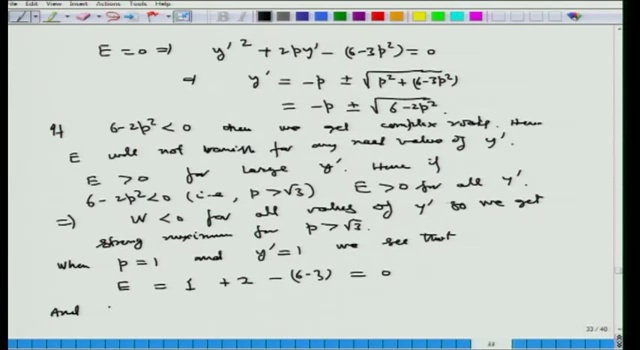 Edit View Insert Actions Tools Help
E = 0 ⇒ y'² + 2py' - (6-3p²) = 0
⇒ y' = -p ± √(p² + (6-3p²))
= -p ± √(6-2p²)
If 6-2p² < 0 then we get complex roots. Hence
E will not vanish for any real value of y'.
E > 0 for large y'. Hence if
6-2p² < 0 (i.e., p > √3) E > 0 for all y'.
⇒ W < 0 for all values of y' so we get
strong maximum for p > √3.
When p = 1 and y' = 1 we see that
E = 1 + 2 - (6-3) = 0
And
33 / 40
33